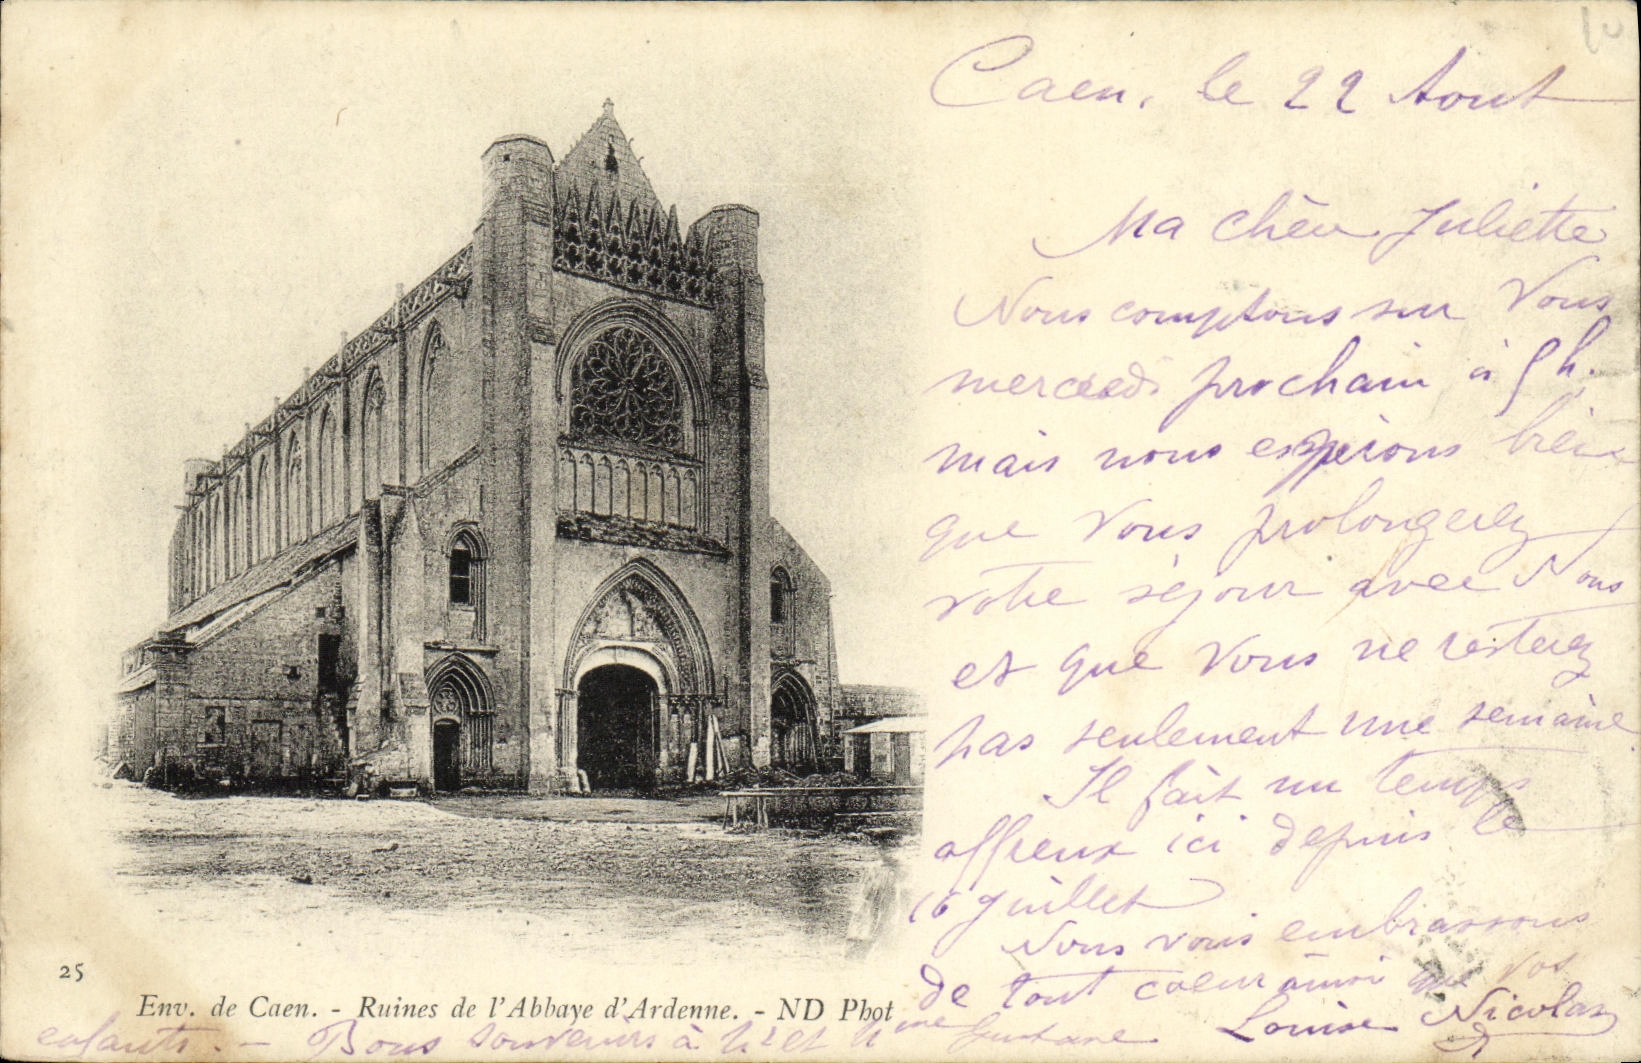 Caen, le 22 Aout
Ma chère Juliette
Nous comptons sur Vous
mercredi prochain à 5 h.
mais nous espérons bien
que Vous prolongerez
votre séjour avec Nous
et que Vous ne resterez
pas seulement une semaine.
Il fait un temps
affreux ici depuis le
16 juillet
Nous vous embrassons
de tout coeur ainsi que vos
enfants. - Bons souvenirs à Mr et Mme Gustave
Louise Nicolas
25
Env. de Caen. - Ruines de l'Abbaye d'Ardenne. - ND Phot